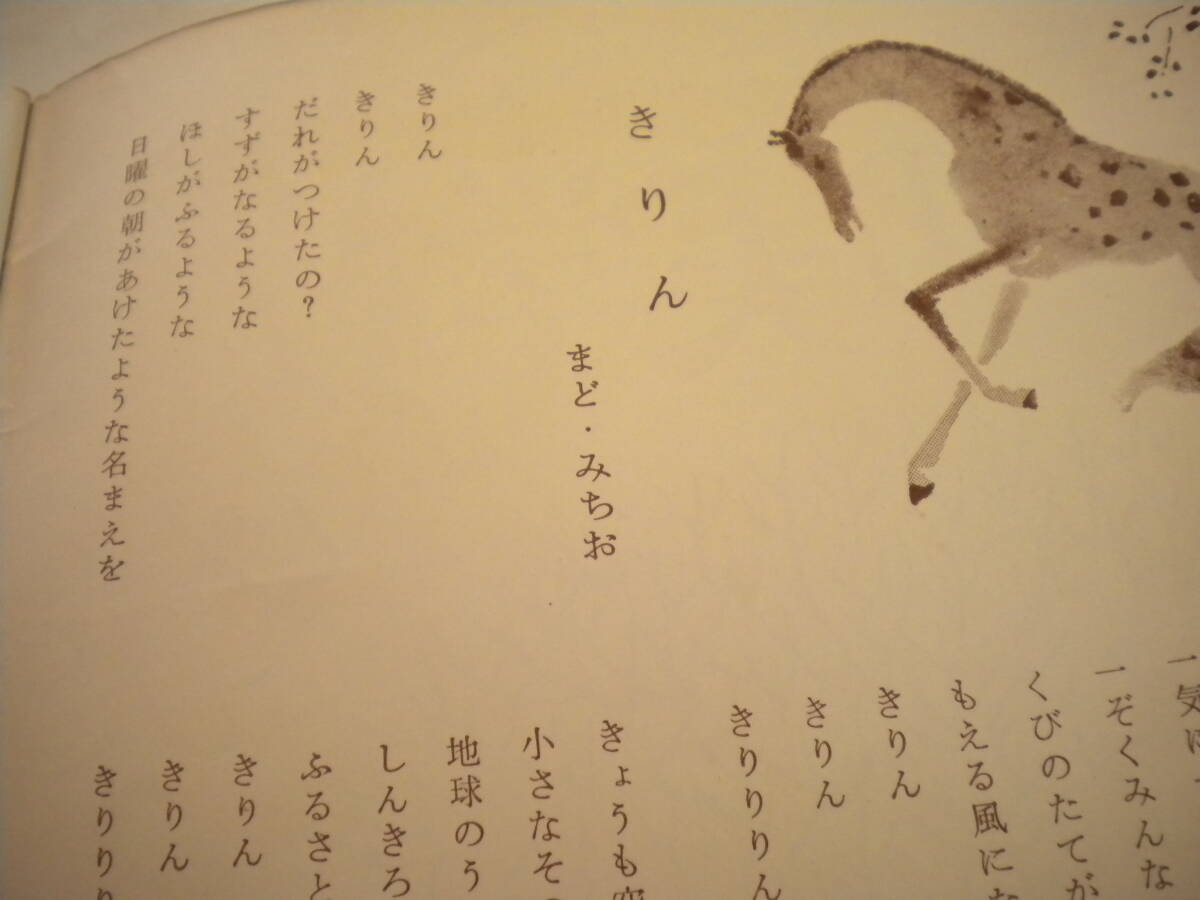 きりん
まど・みちお
きりん
きりん
だれがつけたの？
すずがなるような
ほしがふるような
日曜の朝があけたような名まえを
一ぞくみんな
くびのたてが
もえる風にな
きりん
きりん
きりりりん
きょうも空
小さなそ
地球のう
しんきろ
ふるさと
きりん
きりん
きりりり